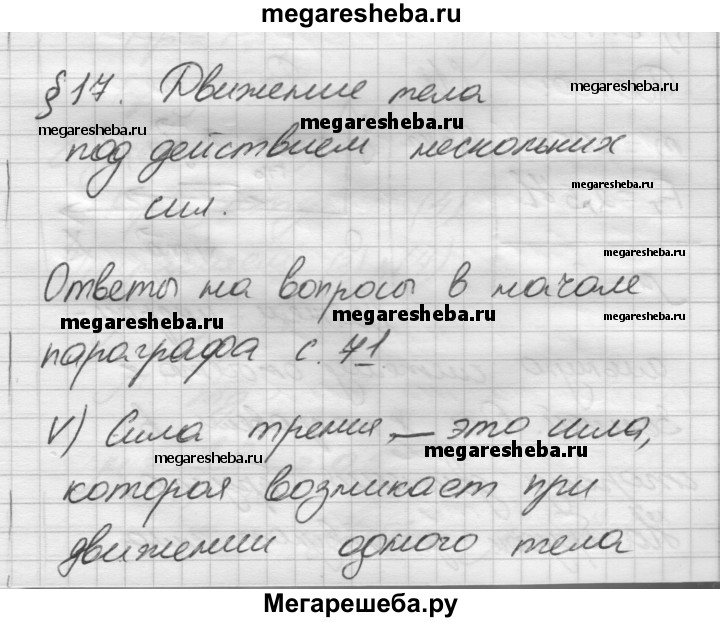 megaresheba.ru
§ 17. Движение тела
megaresheba.ru
megaresheba.ru
megaresheba.ru
под действием нескольких
megaresheba.ru
сил.
megaresheba.ru
Ответы на вопросы в начале
megaresheba.ru
megaresheba.ru
параграфа с. 71
V) Сила трения, — это сила,
megaresheba.ru
megaresheba.ru
которая возникает при
движении одного тела
Мегарешеба.ру